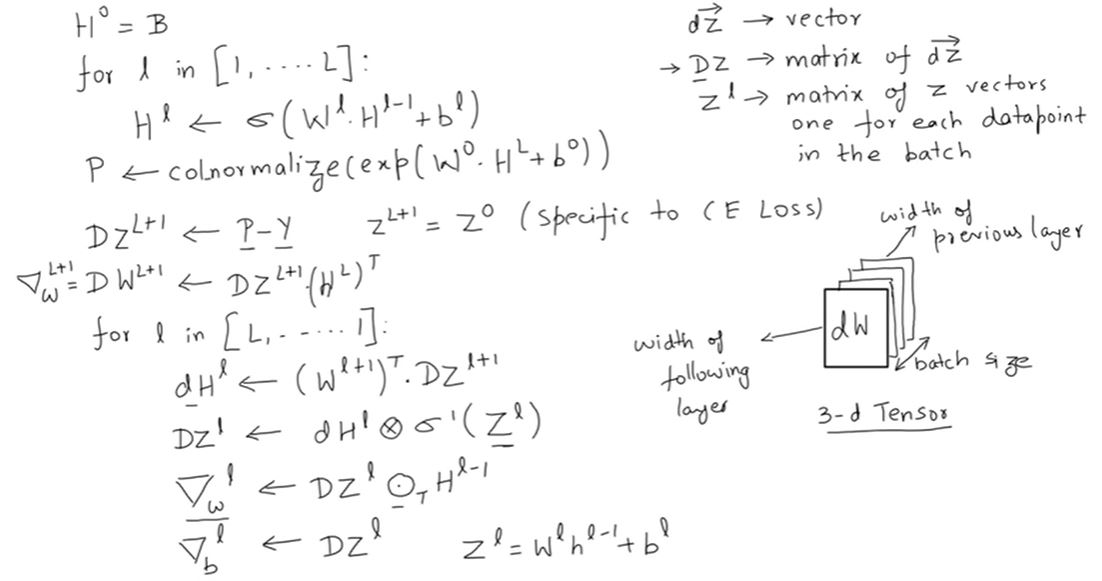 H⁰ = B
for l in [1, .... L]:
Hˡ ← σ(Wˡ. Hˡ⁻¹ + bˡ)
P ← colnormalize(exp(W⁰. Hᴸ + b⁰))
DZᴸ⁺¹ ← P - Y    Zᴸ⁺¹ = Z⁰ (specific to CE Loss)
∇_wᴸ⁺¹ = DWᴸ⁺¹ ← DZᴸ⁺¹.(Hᴸ)ᵀ
for l in [L, - - ... 1]:
dHˡ ← (Wˡ⁺¹)ᵀ. DZˡ⁺¹
DZˡ ← dHˡ ⊗ σ'(Zˡ)
∇_wˡ ← DZˡ ⊙_T Hˡ⁻¹
∇_bˡ ← DZˡ    Zˡ = Wˡhˡ⁻¹ + bˡ
dZ⃗ → vector
→ DZ → matrix of dZ⃗
Zˡ → matrix of z vectors
one for each datapoint
in the batch
width of
previous layer
dW
width of
following
layer
batch size
3-d Tensor